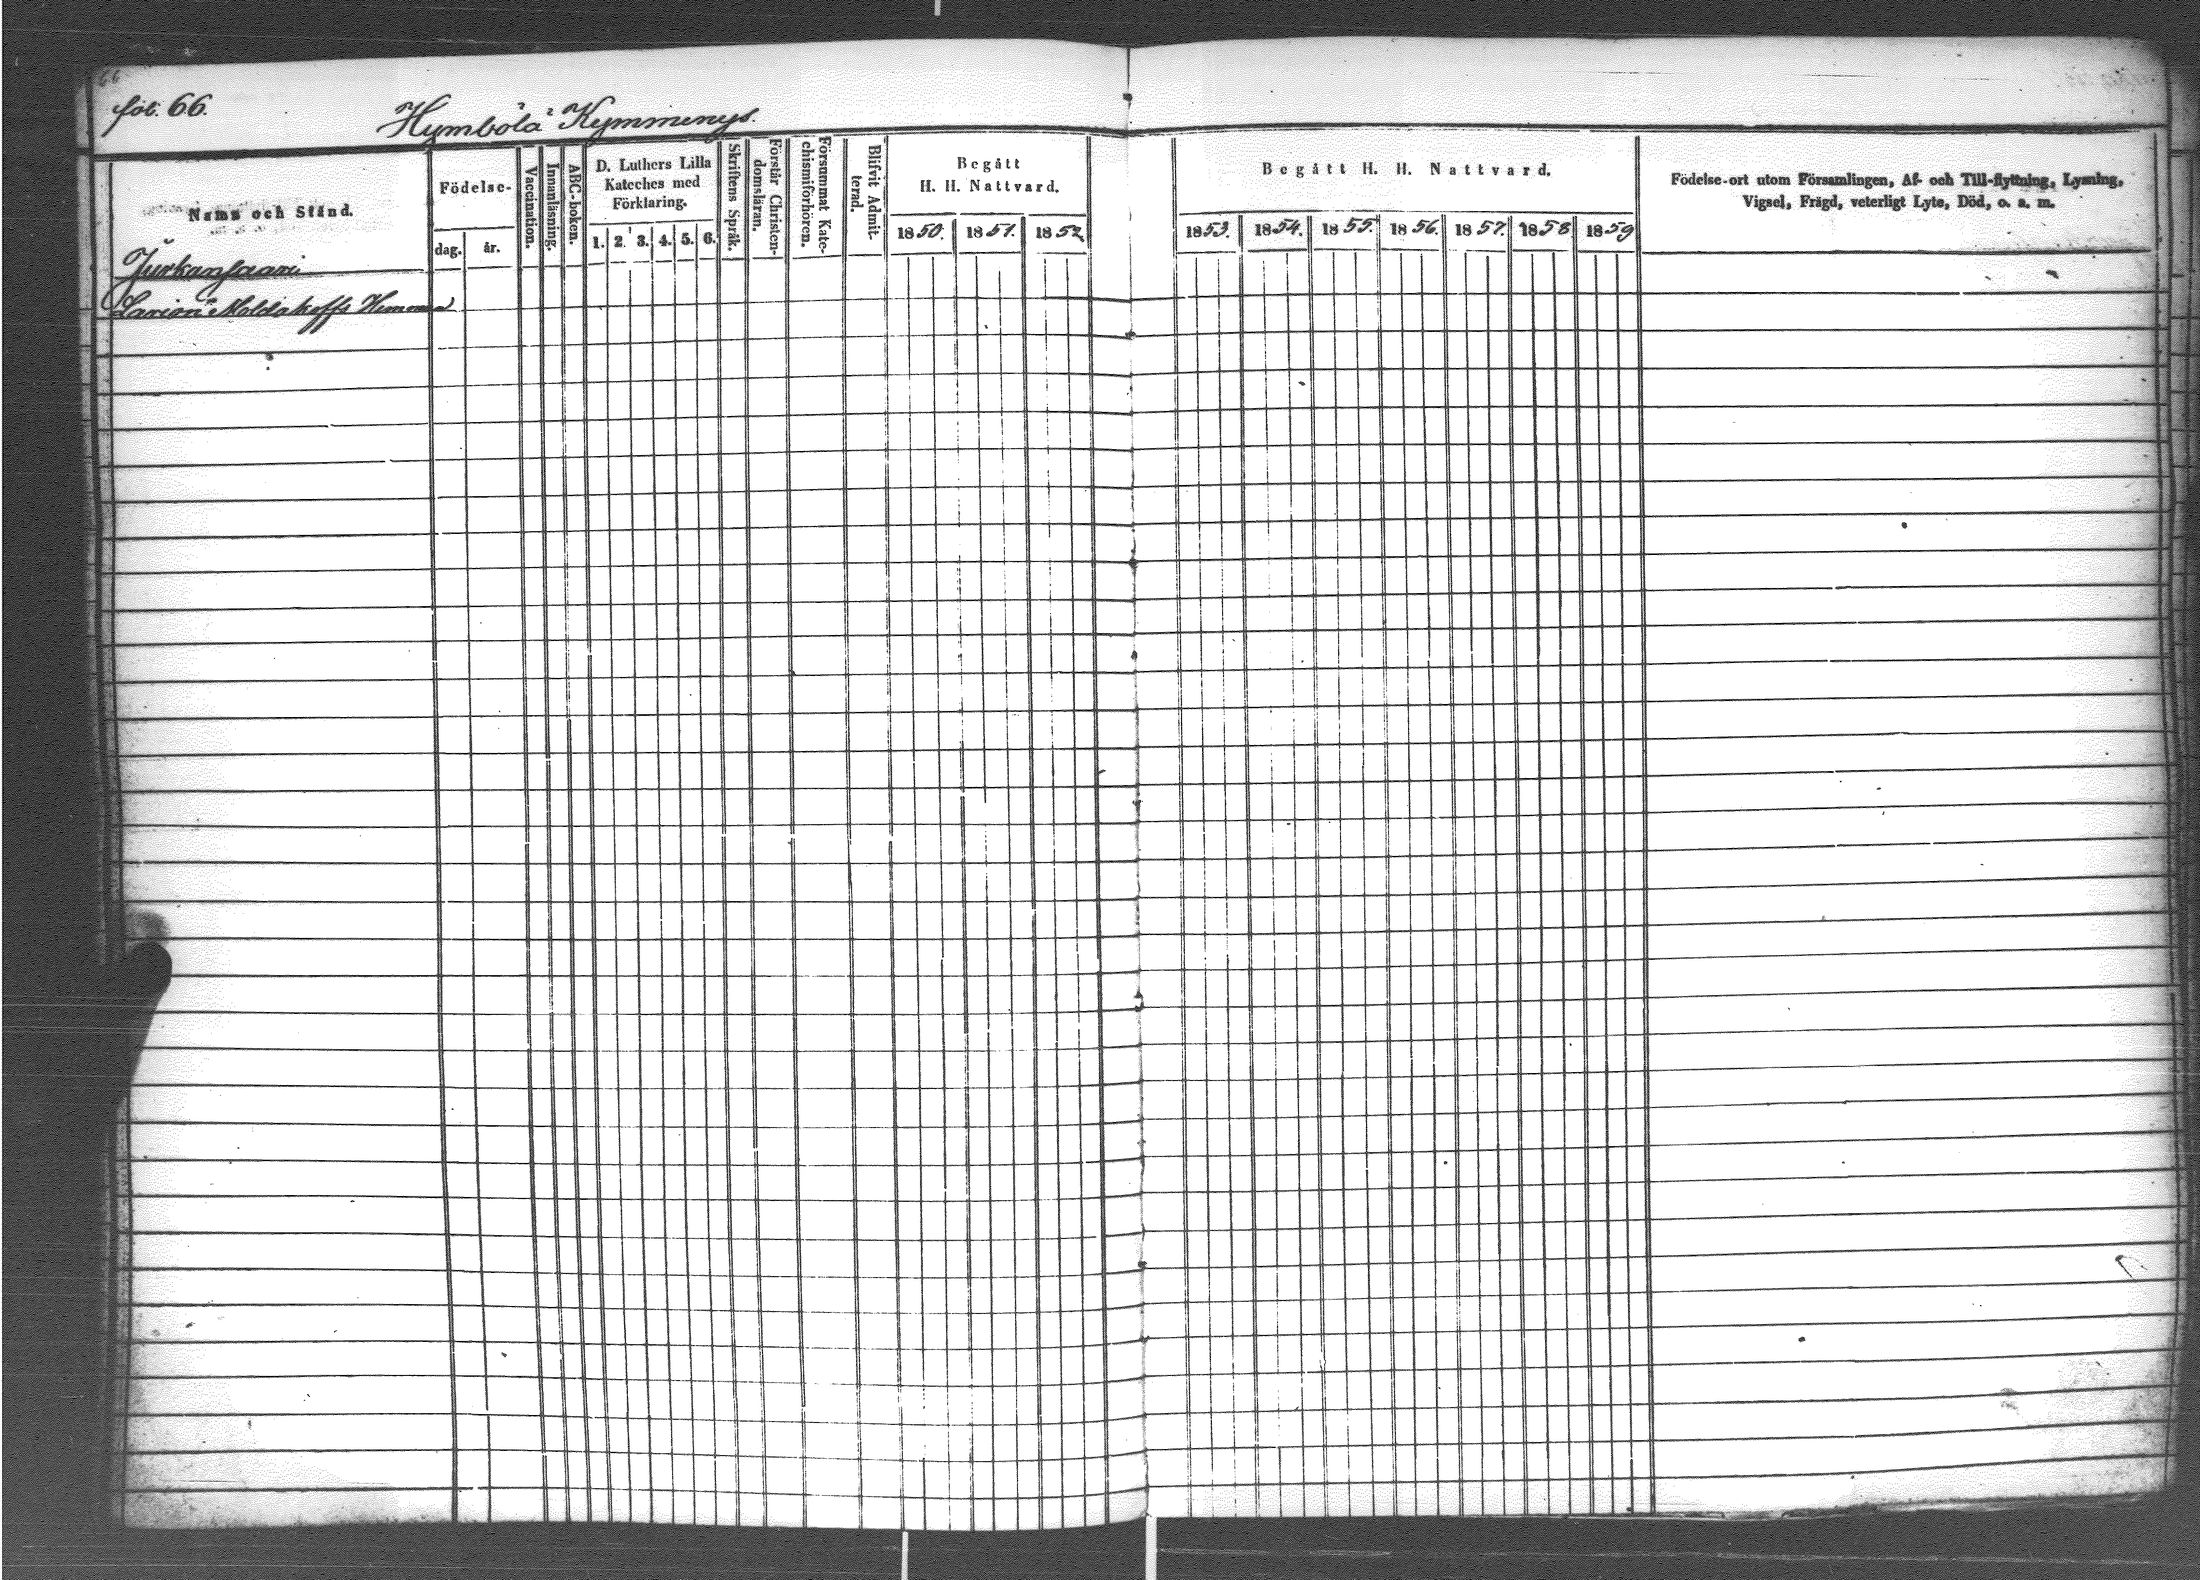 fol. 66.
Hymbölä Kymmenys.
Namn och Stånd.
Födelse-
dag.
år.
Vaccination.
Innanläsning.
ABC-boken.
D. Luthers Lilla
Kateches med
Förklaring.
1. 2. 3. 4. 5. 6.
Skriftens Språk.
Förstår Christen-
domsläran.
Försummat Kate-
chismiförhören.
Blifvit Admit-
terad.
Begått
H. H. Nattvard.
1850. 1851. 1852.
Begått H. H. Nattvard.
1853. 1854. 1855. 1856. 1857. 1858 1859
Födelse-ort utom Församlingen, Af- och Till-flyttning, Lysning,
Vigsel, Frägd, veterligt Lyte, Död, o. a. m.
Jurkansaari
Larion Moldakoffs Hemman